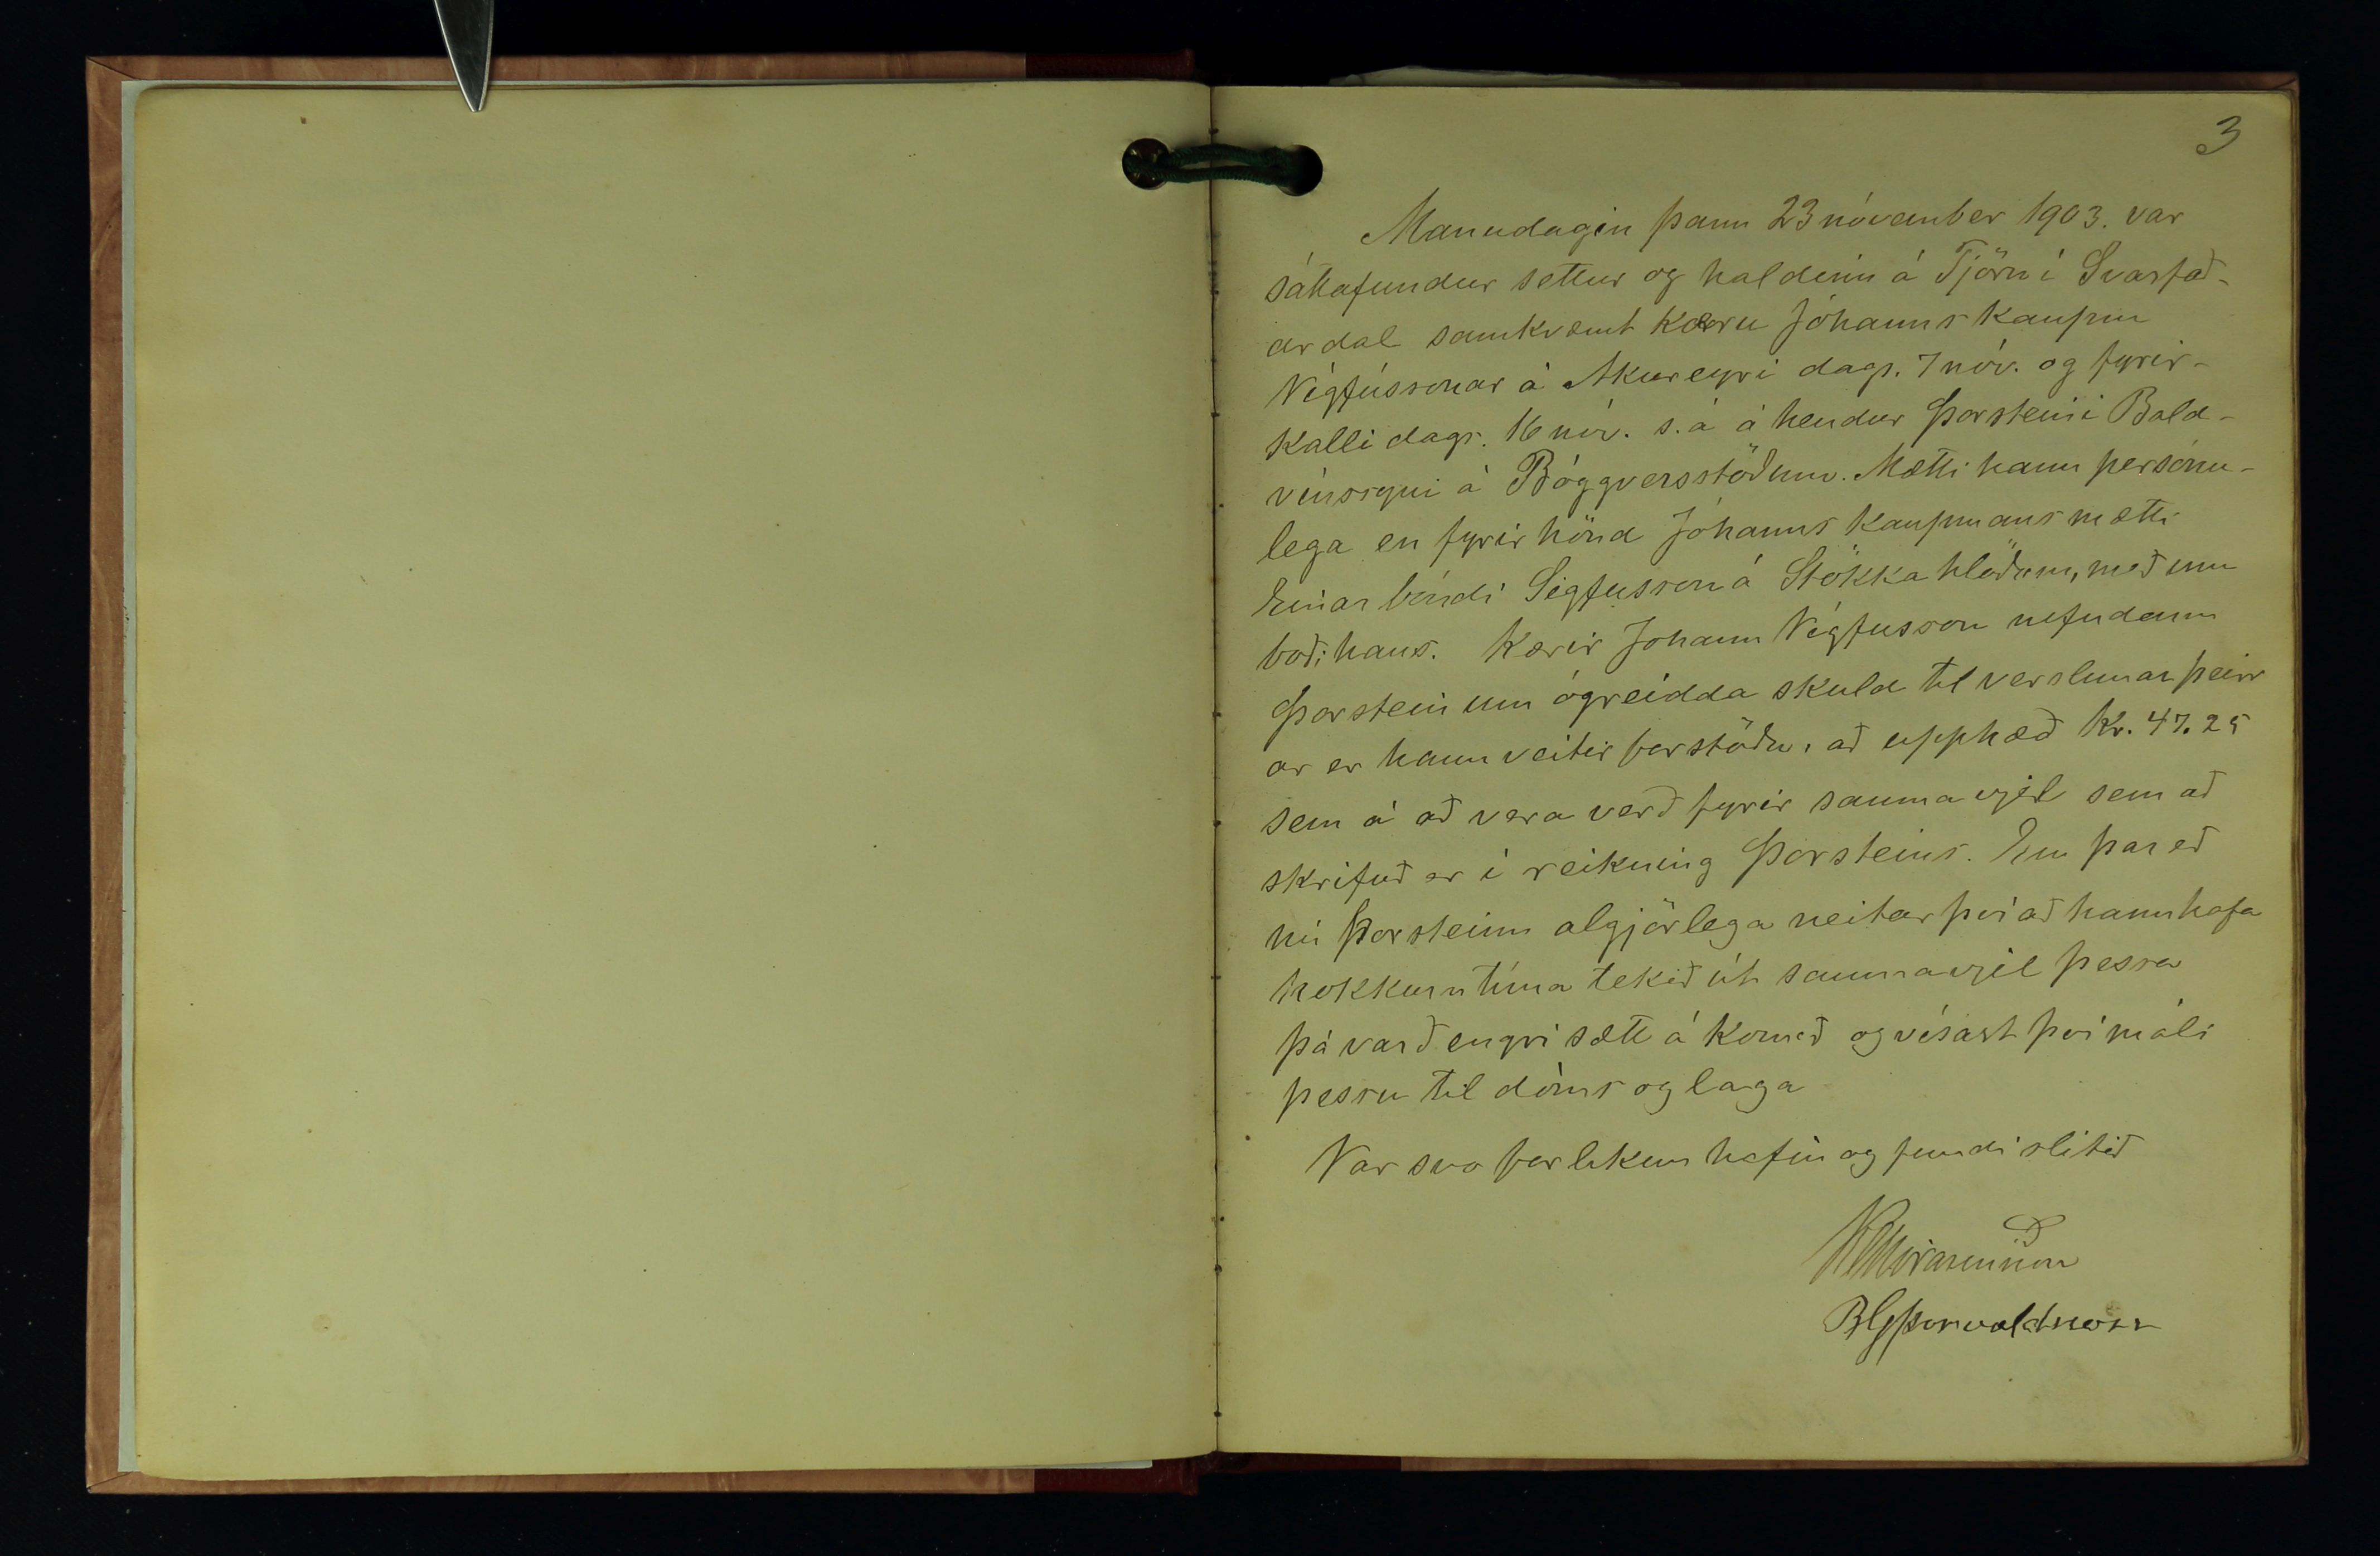 3
Manudagin þann 23 nóvember 1903. var
sáttafundur settur og haldinn á Tjörn í Svarfað-
ardal samkvæmt kæru Jóhanns kaupm
Vígfússonar á Akureyri dags. 7 nóv. og fyrir-
kalli dags. 16 nóv. s. á á hendur Þorsteini Bald-
vinssyni á Böggversstöðum. Mætti hann persónu-
lega en fyrir hönd Jóhanns kaupmans mætti
Einar bóndi Sigfusson á Stökkahlöðum, með um
boði hans. Kærir Johann Vígfusson nefndann
Þorstein um ógreidda skuld til verslunar þeirr
ar er hann veitir forstöðu, að upphæð Kr. 47.25
sem á að vera verð fyrir saumavjel sem að
skrifuð er í reikning Þorsteins. En þar eð
nú Þorsteinn algjörlega neitar því að hann hafa
nokkurn tíma tekið út saumavjel þessa
þá varð engri sætt á komið og vísast því máli
þessu til dóms og laga
Var svo forlikun hafin og fundi slitið
BlgÞorvaldsson